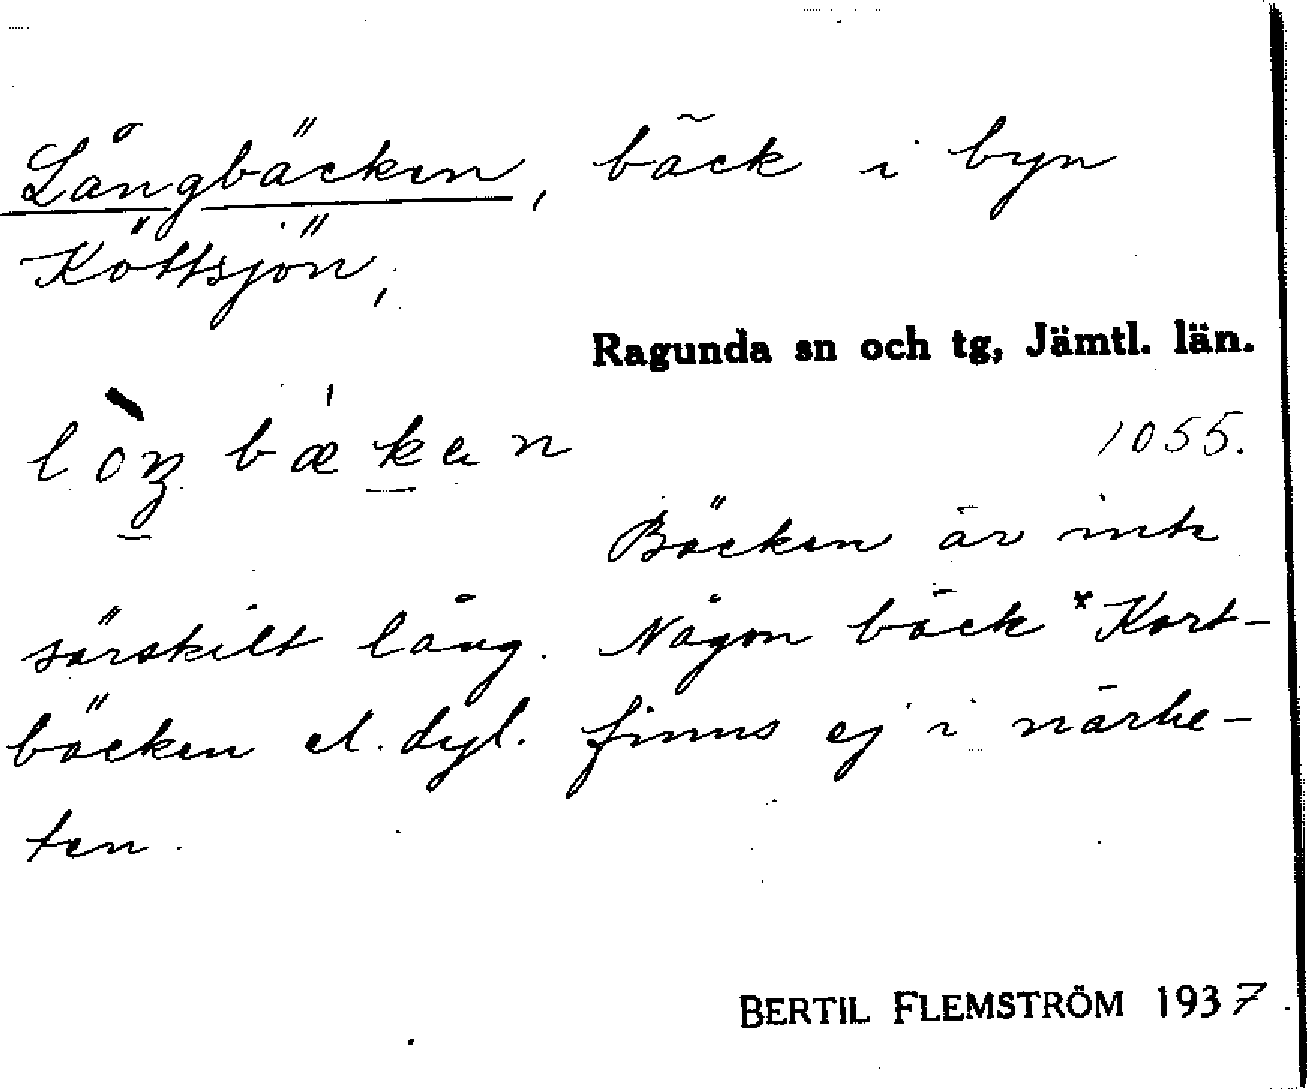 Långbäcken, bäck i byn
Köttsjön,
Ragunda sn och tg, Jämtl. län.
lòŋbækan
1055.
Bäcken är inte
särskilt lång. Någon bäck *Kort-
bäcken el. dyl. finns ej i närhe-
ten.
BERTIL FLEMSTRÖM 1937